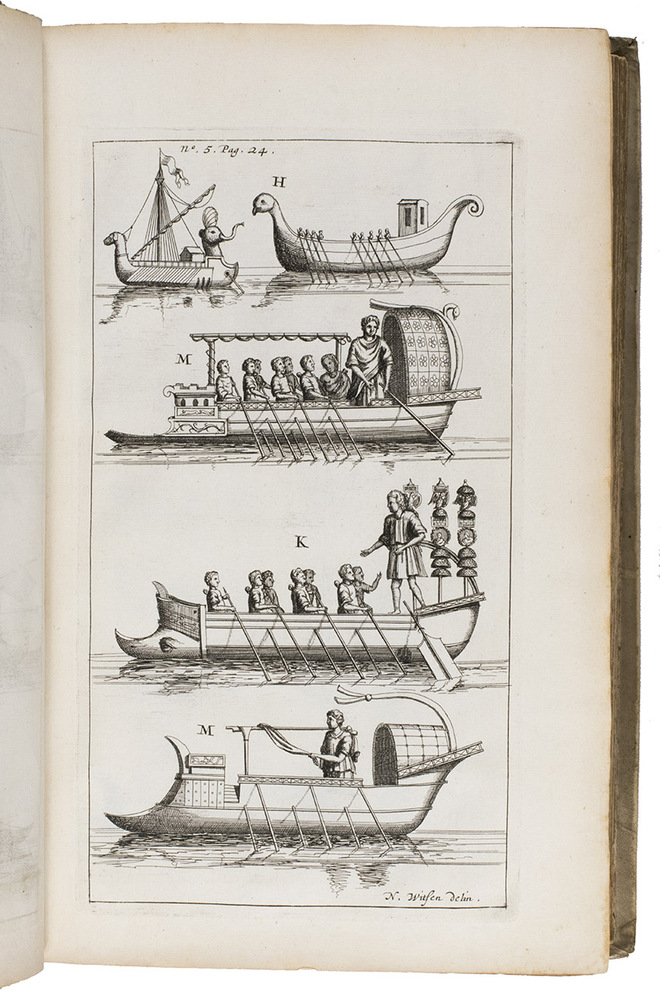 Nº. 5. Pag. 24.
H
M
K
M
N. Witsen delin.